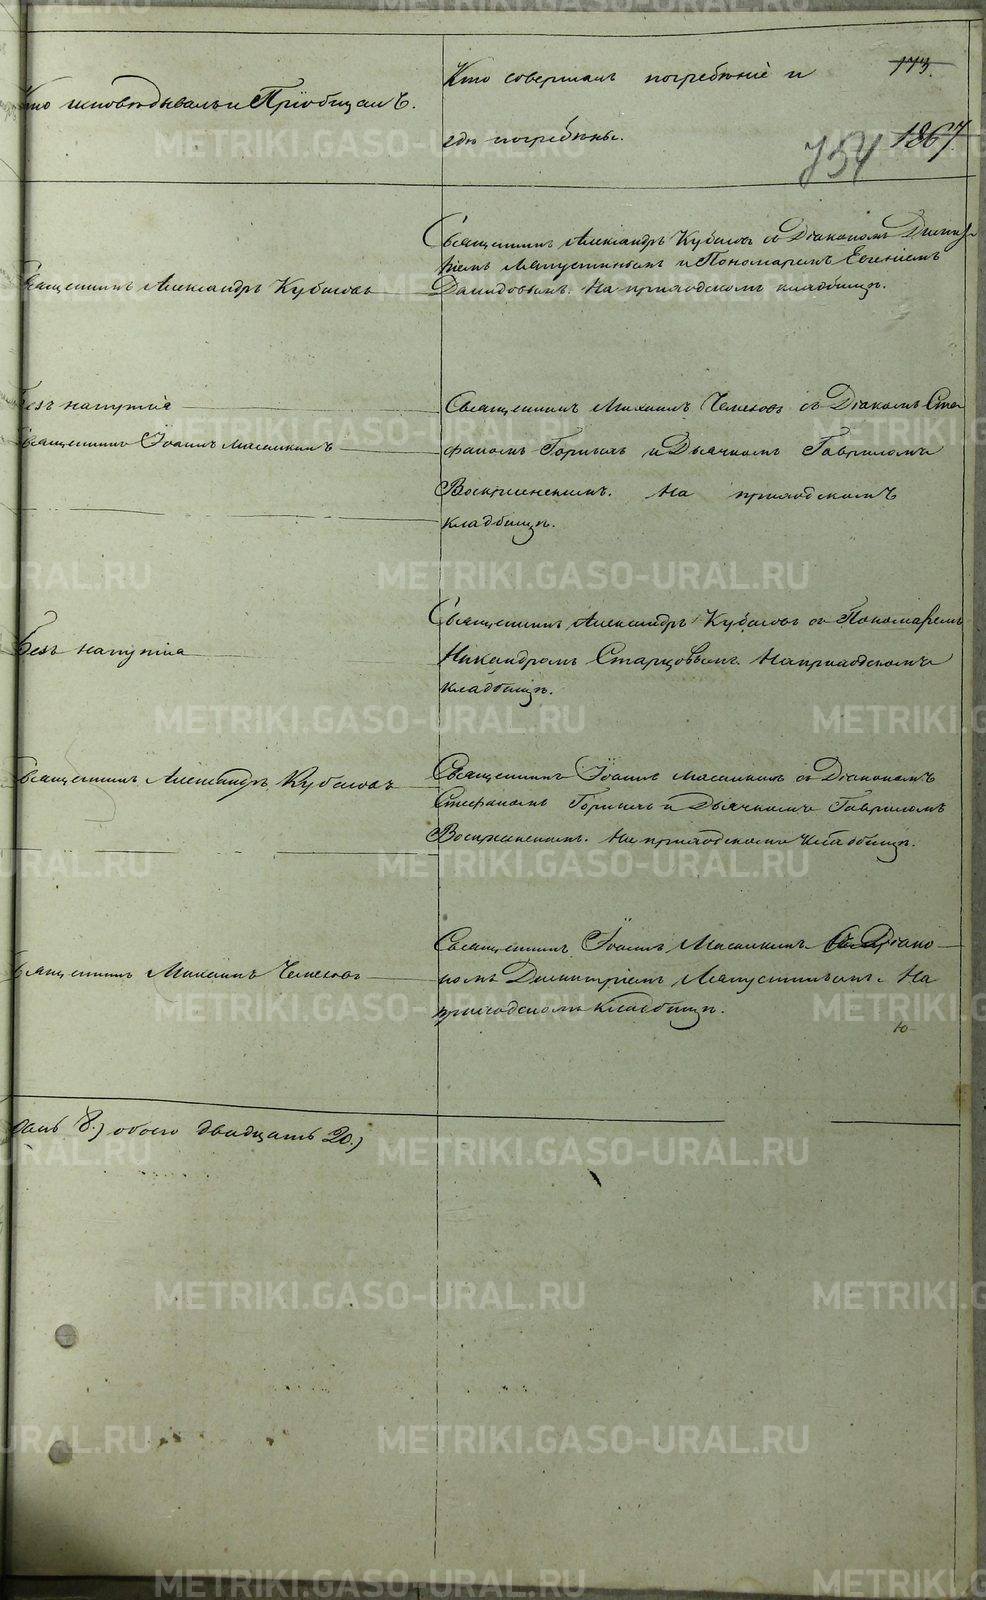 Кто исповѣдывалъ и Пріобщалъ.
Кто совершалъ погребѣніе и
гдѣ погребѣны.
173.
1867
754
Священникъ Александръ Кубасовъ
Священникъ Александръ Кубасовъ съ Діакономъ Димит-
ріемъ Ляпустинымъ и Пономаремъ Евгеніемъ
Давидовымъ. На приходскомъ кладбищѣ.
Безъ напутія
Священникъ Іоаннъ
Священникъ Михаилъ съ Діакономъ Сте-
фаномъ и Дьячкомъ Гавриломъ
Воскресенскимъ. На приходскомъ
кладбищѣ.
Безъ напутія
Священникъ Александръ Кубасовъ съ Пономаремъ
Никандромъ Старцовымъ. На приходскомъ
кладбищѣ.
Священникъ Александръ Кубасовъ
Священникъ Іоаннъ съ Діакономъ
Стефаномъ и Дьячкомъ Гавриломъ
Воскресенскимъ. На приходскомъ кладбищѣ.
Священникъ Михаилъ
Священникъ Іоаннъ Діако-
номъ Димитріемъ Ляпустинымъ. На
приходскомъ кладбищѣ.
8.) обоего двадцать 20.)
METRIKI.GASO-URAL.RU